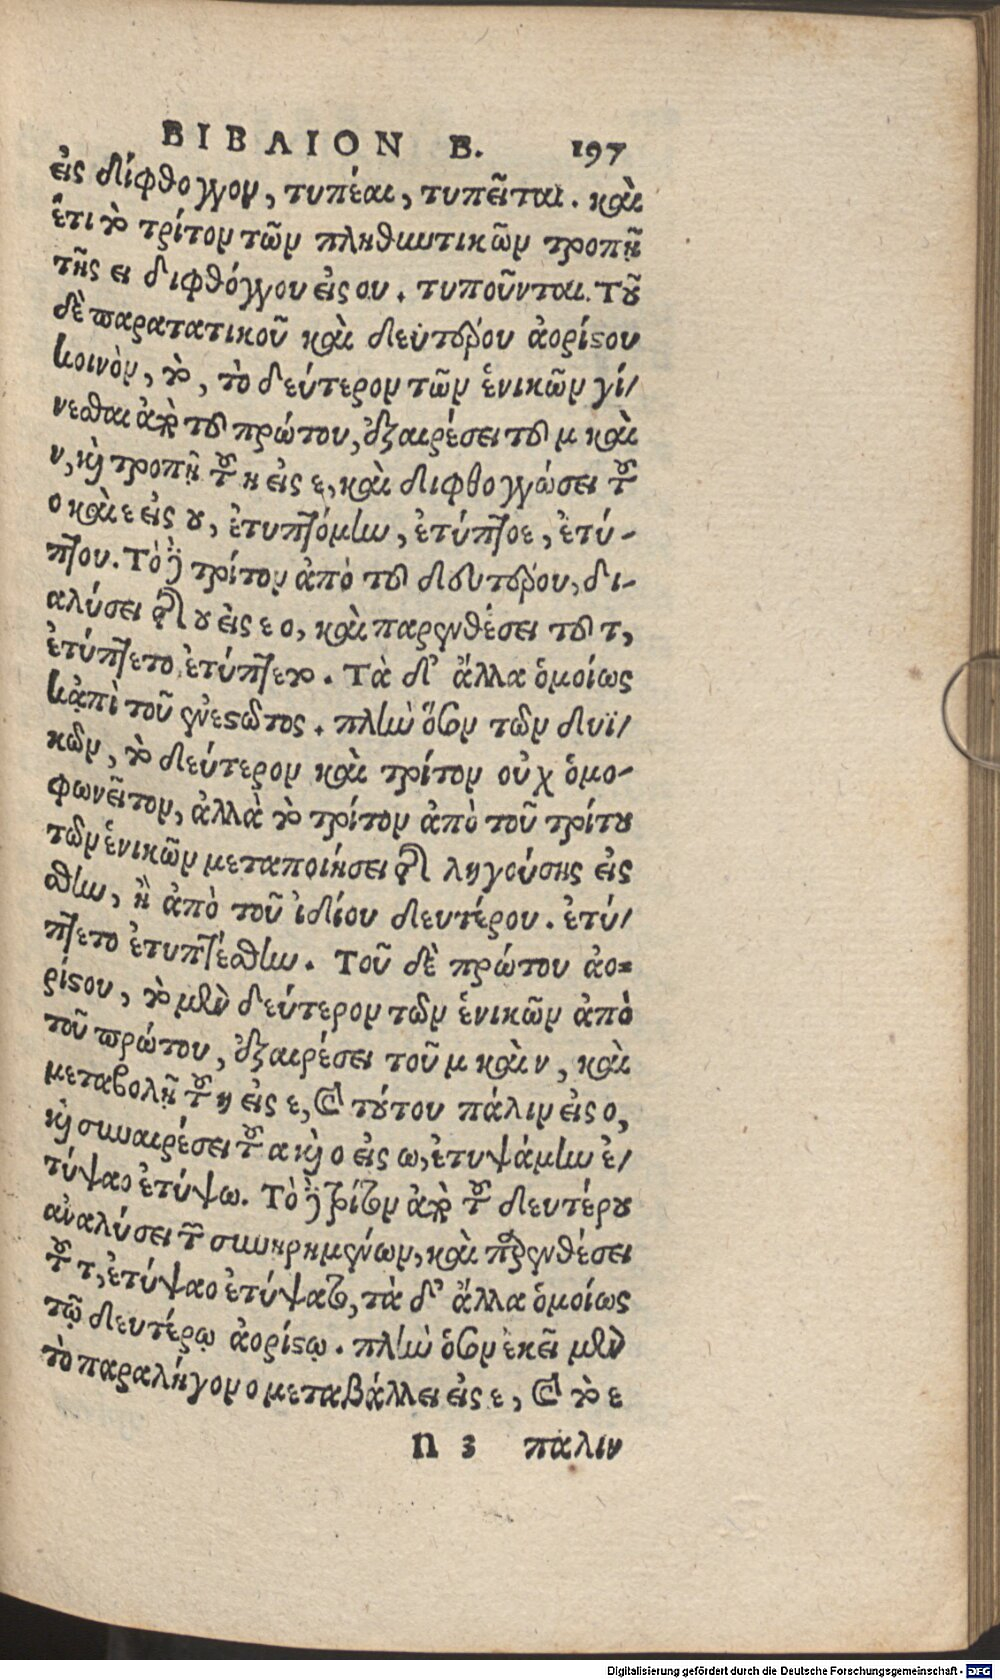 ΒΙΒΛΙΟΝ Β. 197
εἰς δίφθογγον, τυπέαι, τυπεῖται. καὶ
ἔτι τὸ τρίτον τῶν πληθυντικῶν τροπῇ
τῆς ει διφθόγγου εἰς ου. τυποῦνται. Τοῦ
δὲ παρατατικοῦ καὶ δευτέρου ἀορίστου
κοινὸν, τὸ, τὸ δεύτερον τῶν ἑνικῶν γί/
νεσθαι ἀπὸ τοῦ πρώτου, ἐξαιρέσει τοῦ μ καὶ
ν, καὶ τροπῇ τοῦ η εἰς ε, καὶ διφθογγώσει τοῦ
ο καὶ ε εἰς ου, ἐτυπτόμην, ἐτύπτοε, ἐτύ-
πτου. Τὸ δὲ τρίτον ἀπὸ τοῦ δευτέρου, δι-
αλύσει τῆς ου εἰς ε ο, καὶ παρενθέσει τοῦ τ,
ἐτύπτετο, ἐτύπτετο. Τὰ δ' ἄλλα ὁμοίως
κἀπὶ τοῦ ἐνεστῶτος. πλὴν ὅσον τῶν δυϊ/
κῶν, τὸ δεύτερον καὶ τρίτον οὐχ ὁμο-
φωνεῖτον, ἀλλὰ τὸ τρίτον ἀπὸ τοῦ τρίτου
τῶν ἑνικῶν μεταποιήσει τῆς ληγούσης εἰς
σθην, ἢ ἀπὸ τοῦ ἰδίου δευτέρου. ἐτύ/
πτετο ἐτυπτέσθην. Τοῦ δὲ πρώτου ἀο-
ρίστου, τὸ μὲν δεύτερον τῶν ἑνικῶν ἀπὸ
τοῦ πρώτου, ἐξαιρέσει τοῦ μ καὶ ν, καὶ
μεταβολῇ τοῦ η εἰς ε, καὶ τούτου πάλιν εἰς ο,
καὶ συναιρέσει τοῦ α καὶ ο εἰς ω, ἐτυψάμην ἐ/
τύψαο ἐτύψω. Τὸ δὲ τρίτον ἀπὸ τοῦ δευτέρου
ἀναλύσει τῶν συνηρημένων, καὶ παρενθέσει
τοῦ τ, ἐτύψαο ἐτύψατο, τὰ δ' ἄλλα ὁμοίως
τῷ δευτέρῳ ἀορίστῳ. πλὴν ὅσον ἐκεῖ μὲν
τὸ παραλήγον ο μεταβάλλει εἰς ε, καὶ τὸ ε
n 3 παλιν
Digitalisierung gefördert durch die Deutsche Forschungsgemeinschaft - DFG